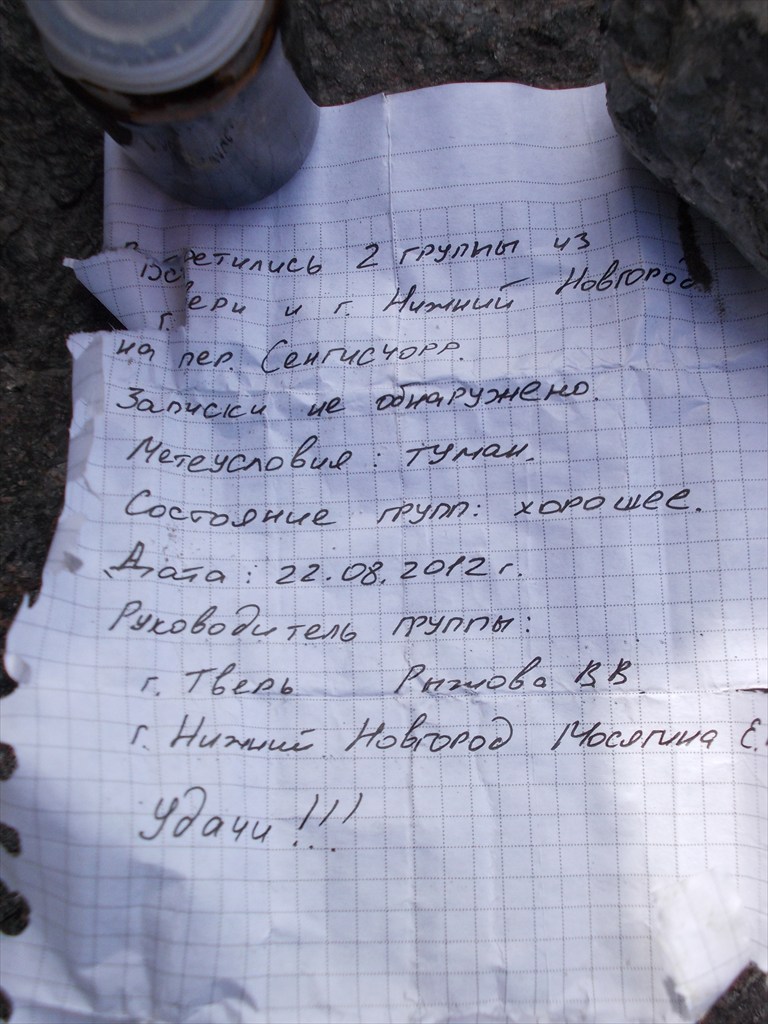 Встретились 2 группы из
г. Твери и г. Нижний Новгород
на пер. Сенгисчорр.
Записки не обнаружено.
Метеусловия: туман.
Состояние групп: хорошее.
Дата: 22.08.2012 г.
Руководитель группы:
г. Тверь Рыжова В В
г. Нижний Новгород Мосягина Е.
Удачи!!!